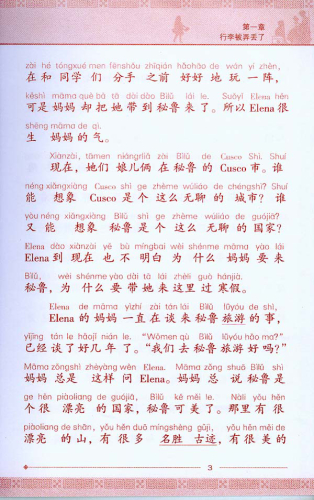 第一章
行李被弄丢了
zài hé tóngxué men fēnshǒu zhīqián hǎohāo de wán yí zhèn,
在和 同学 们 分手 之前 好好 地 玩 一 阵，
kěshì māma què bǎ tā dài dào Bìlǔ lái le. Suǒyǐ Elena hěn
可是 妈妈 却 把 她 带 到 秘鲁 来 了。所以 Elena 很
shēng māma de qì.
生 妈妈 的 气。
Xiànzài, tāmen niángrliǎ zài Bìlǔ de Cusco Shì. Shuí
现在，她们 娘儿俩 在 秘鲁 的 Cusco 市。谁
néng xiǎngxiàng Cusco shì ge zhème wúliáo de chéngshì? Shuí
能 想象 Cusco 是 个 这么 无聊 的 城市？谁
yòu néng xiǎngxiàng Bìlǔ shì ge zhème wúliáo de guójiā?
又 能 想象 秘鲁 是 个 这么 无聊 的 国家？
Elena dào xiànzài yě bù míngbai wèi shénme māma yào lái
Elena 到 现在 也 不 明白 为 什么 妈妈 要 来
Bìlǔ, wèi shénme yào dài tā lái zhèlǐ guò hánjià.
秘鲁，为 什么 要 带 她 来 这里 过 寒假。
Elena de māma yìzhí zài tán lái Bìlǔ lǚyóu de shì,
Elena 的 妈妈 一直 在 谈 来 秘鲁 旅游 的 事，
yǐjīng tán le hǎojǐ nián le. "Wǒmen qù Bìlǔ lǚyóu hǎo ma?"
已经 谈 了 好几 年 了。“我们 去 秘鲁 旅游 好 吗？”
Māma zǒngshì zhèyàng wèn Elena. Māma zǒng shuō Bìlǔ shì
妈妈 总是 这样 问 Elena。妈妈 总 说 秘鲁 是
ge hěn piàoliang de guójiā, Bìlǔ kě měi le. Nàlǐ yǒu hěn
个 很 漂亮 的 国家，秘鲁 可美 了。那里 有 很
piàoliang de shān, yǒu hěn duō míngshèng gǔjì, yǒu hěn měi de
漂亮 的 山，有 很 多 名胜 古迹，有 很 美 的
3